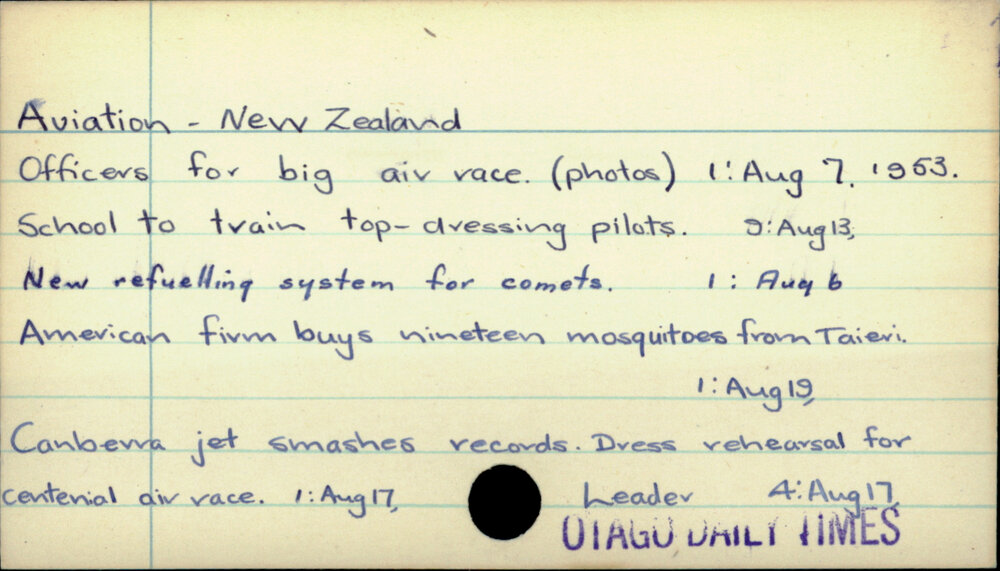 Aviation - New Zealand
Officers for big air race. (photos) 1: Aug 7. 1953.
School to train top-dressing pilots. 9: Aug 13,
New refuelling system for comets. 1: Aug 6
American firm buys nineteen mosquitoes from Taieri.
1: Aug 19,
Canberra jet smashes records. Dress rehearsal for
centenial air race. 1: Aug 17, Leader 4: Aug 17,
OTAGO DAILY TIMES